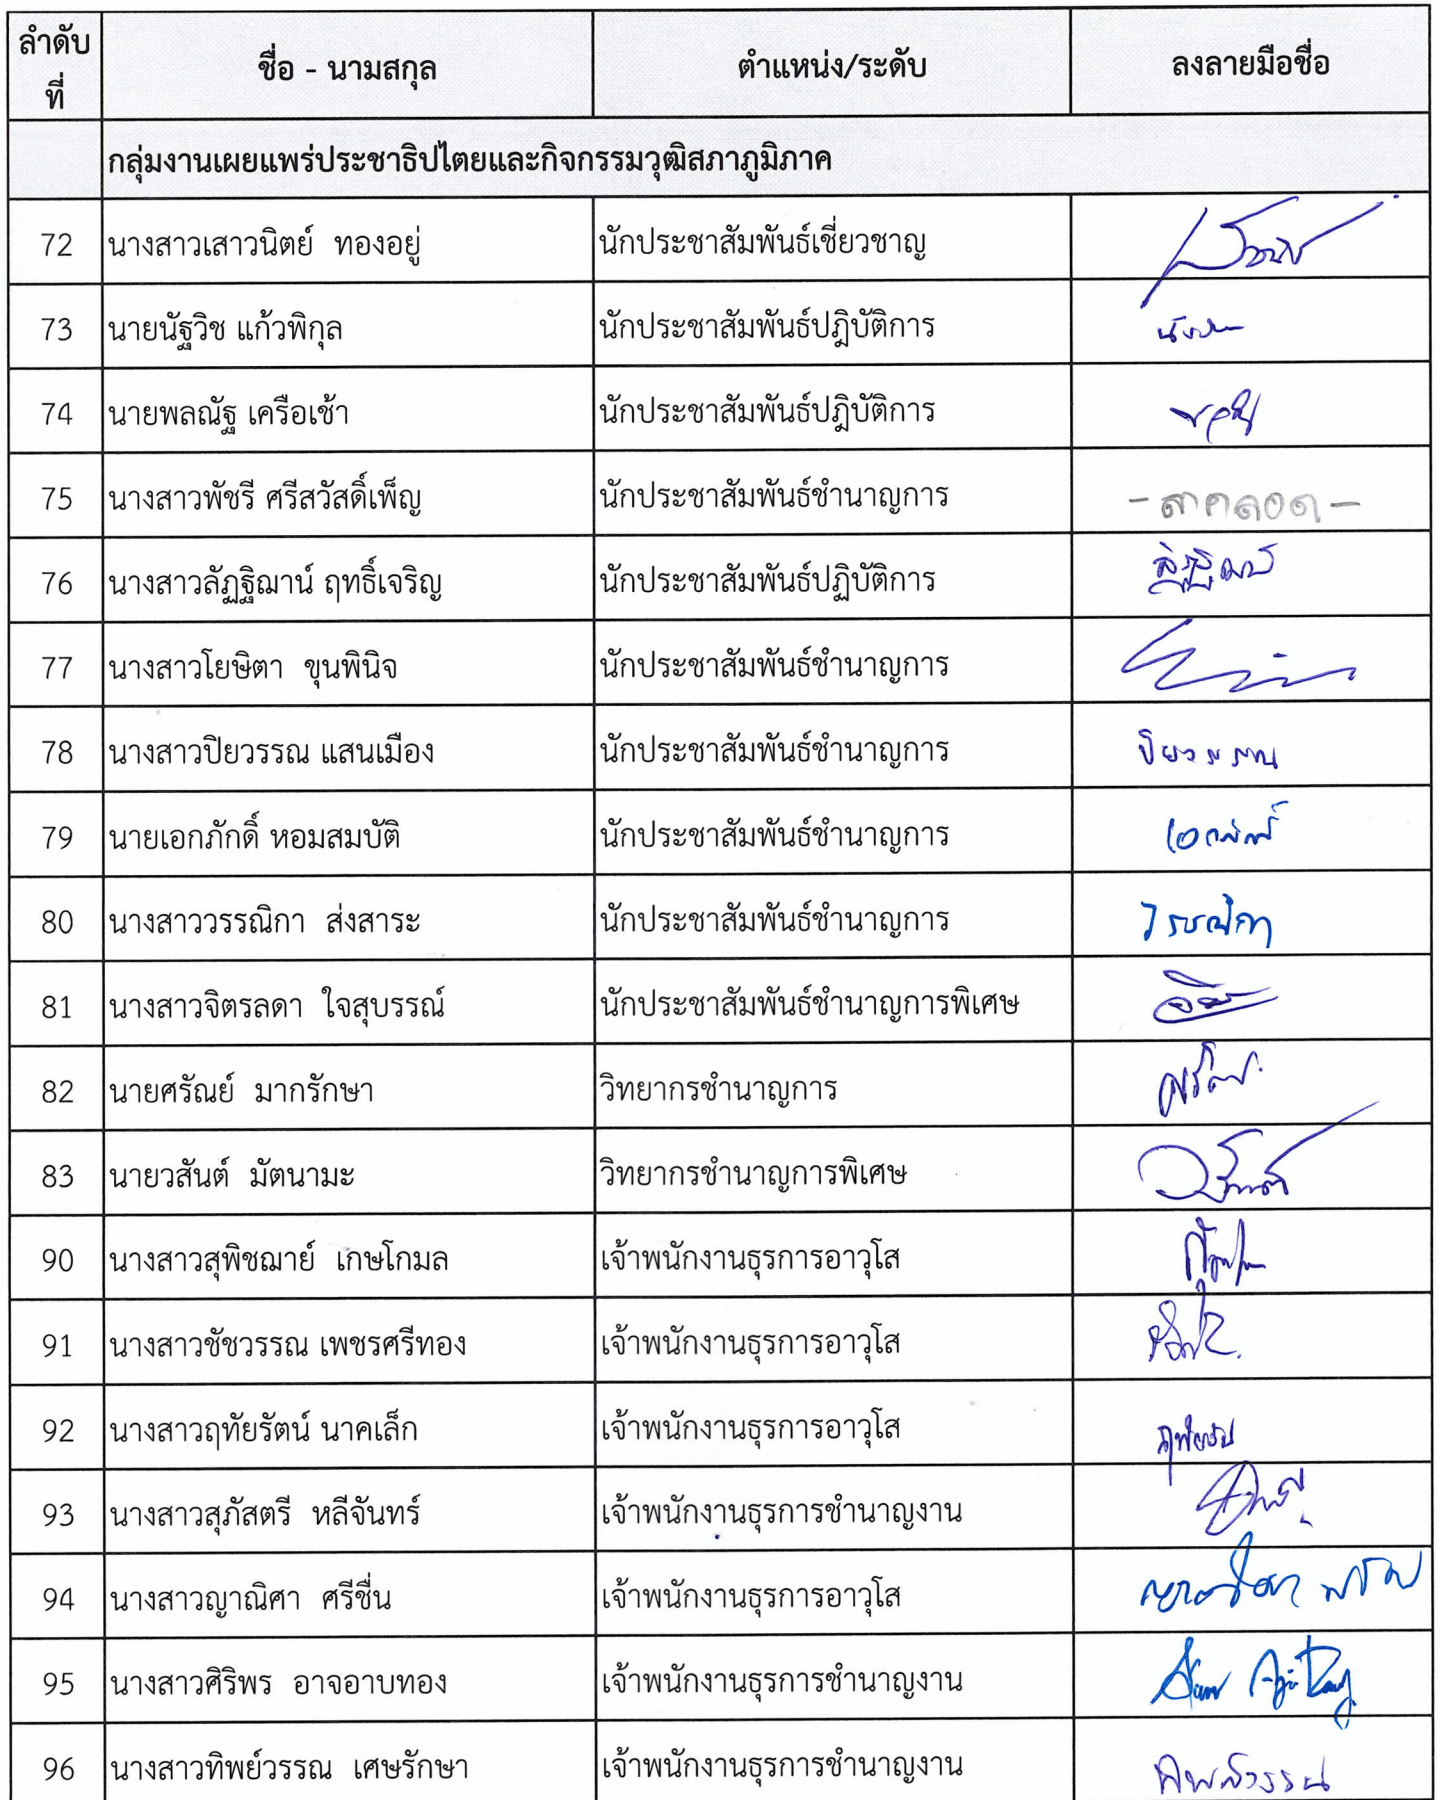 ลำดับ
ที่
ชื่อ - นามสกุล
ตำแหน่ง/ระดับ
ลงลายมือชื่อ
กลุ่มงานเผยแพร่ประชาธิปไตยและกิจกรรมวุฒิสภาภูมิภาค
72 นางสาวเสาวนิตย์ ทองอยู่ นักประชาสัมพันธ์เชี่ยวชาญ
73 นายนัฐวิช แก้วพิกุล นักประชาสัมพันธ์ปฏิบัติการ
74 นายพลณัฐ เครือเช้า นักประชาสัมพันธ์ปฏิบัติการ
75 นางสาวพัชรี ศรีสวัสดิ์เพ็ญ นักประชาสัมพันธ์ชำนาญการ - ลาคลอด -
76 นางสาวลัฏฐิฌาน์ ฤทธิ์เจริญ นักประชาสัมพันธ์ปฏิบัติการ
77 นางสาวโยษิตา ขุนพินิจ นักประชาสัมพันธ์ชำนาญการ
78 นางสาวปิยวรรณ แสนเมือง นักประชาสัมพันธ์ชำนาญการ ปิยวรรณ
79 นายเอกภักดิ์ หอมสมบัติ นักประชาสัมพันธ์ชำนาญการ
80 นางสาววรรณิกา ส่งสาระ นักประชาสัมพันธ์ชำนาญการ วรรณิกา
81 นางสาวจิตรลดา ใจสุบรรณ์ นักประชาสัมพันธ์ชำนาญการพิเศษ
82 นายศรัณย์ มากรักษา วิทยากรชำนาญการ
83 นายวสันต์ มัตนามะ วิทยากรชำนาญการพิเศษ
90 นางสาวสุพิชฌาย์ เกษโกมล เจ้าพนักงานธุรการอาวุโส
91 นางสาวชัชวรรณ เพชรศรีทอง เจ้าพนักงานธุรการอาวุโส
92 นางสาวฤทัยรัตน์ นาคเล็ก เจ้าพนักงานธุรการอาวุโส
93 นางสาวสุภัสตรี หลีจันทร์ เจ้าพนักงานธุรการชำนาญงาน
94 นางสาวญาณิศา ศรีชื่น เจ้าพนักงานธุรการอาวุโส
95 นางสาวศิริพร อาจอาบทอง เจ้าพนักงานธุรการชำนาญงาน
96 นางสาวทิพย์วรรณ เศษรักษา เจ้าพนักงานธุรการชำนาญงาน ทิพย์วรรณ